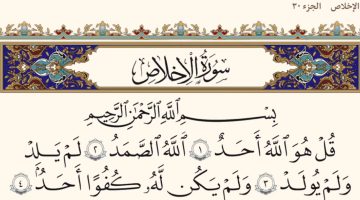 الإخلاص الجزء ٣٠
سُورَةُ الإِخْلَاصِ
بِسْمِ ٱللَّهِ ٱلرَّحْمَٰنِ ٱلرَّحِيمِ
قُلْ هُوَ ٱللَّهُ أَحَدٌ ١ ٱللَّهُ ٱلصَّمَدُ ٢ لَمْ يَلِدْ
وَلَمْ يُولَدْ ٣ وَلَمْ يَكُن لَّهُۥ كُفُوًا أَحَدٌۢ ٤